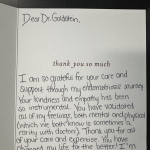 Dear Dr. Goldstein,
thank you so much
I am so grateful for your care and
support through my endometriosis journey.
Your kindness and empathy has been
so instrumental. You have validated
all of my feelings, both mental and physical
(which we both know is sometimes a
rarity with doctors). Thank you for all
of your care and expertise. You have
changed my life for the better! I'm